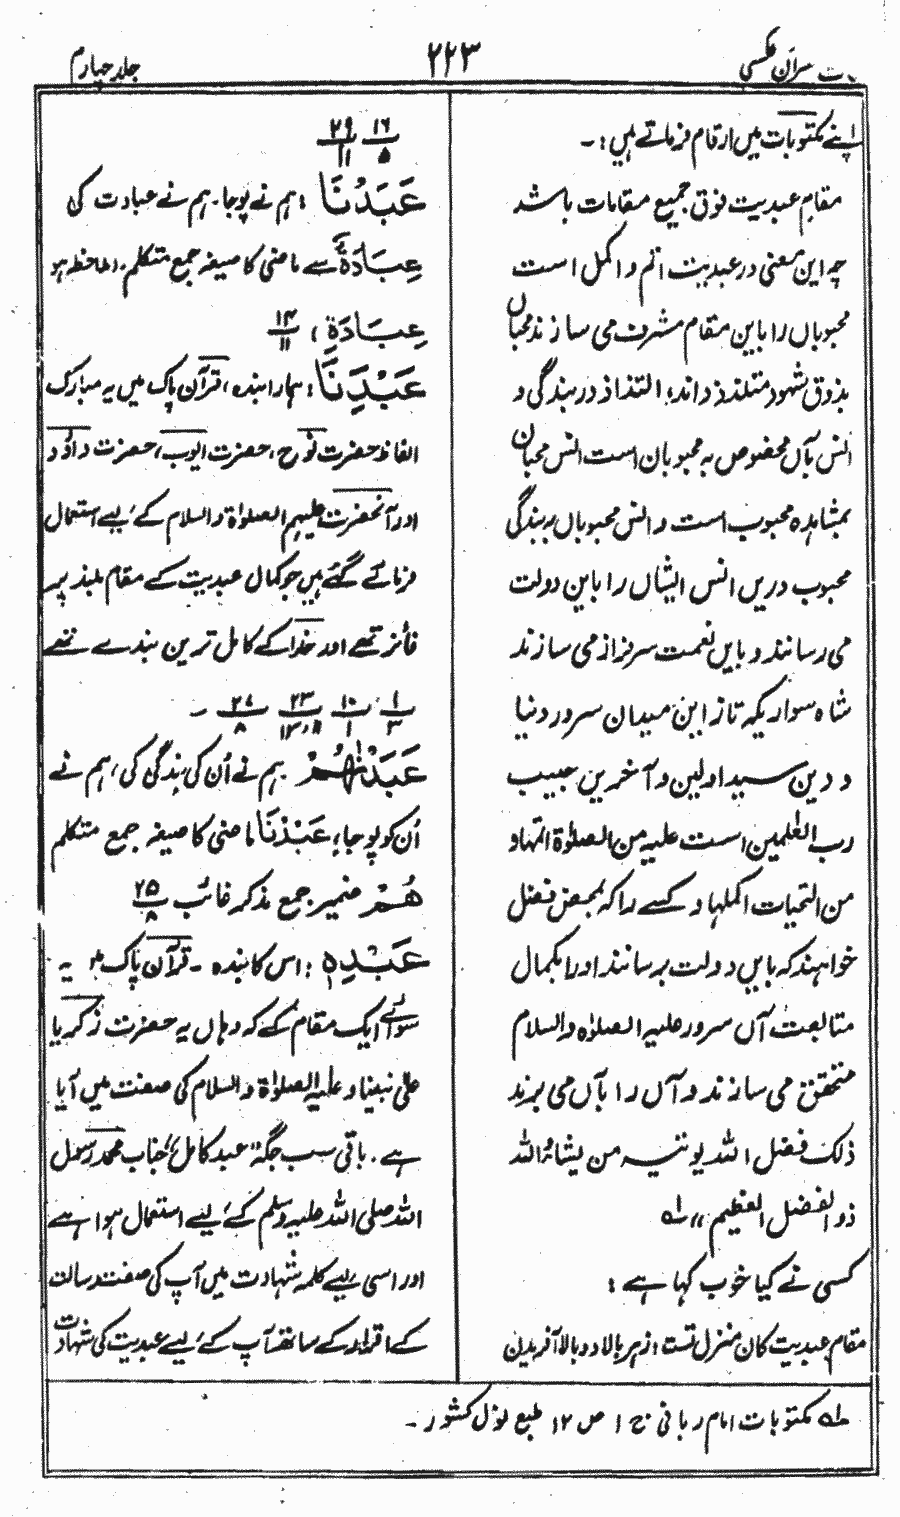 جلد چہارم
۲۲۳
اپنے مکتوبات میں ارقام فرماتے ہیں :۔
مقام عبدیت فوق جمیع مقامات باشد
چہ این معنی در عبدیت اتم و اکمل است
محبوباں را باین مقام مشرف می سازند محباں
بذوق شہود متلذذ داند، التذاذ در بندگی و
انس بآں مخصوص بہ محبوبان است انس محباں
بمشاہدہ محبوب است و انس محبوباں بربندگی
محبوب دریں انس ایشاں را باین دولت
می رسانند و بایں نعمت سرفراز می سازند
شاہ سوار یکہ تاز این میدان سرور دنیا
و دین سید اولین و آخرین حبیب
رب العٰلمین است علیہ من الصلوٰۃ اتمہا و
من التحیات اکملہا و کسے را کہ بمحض فضل
خواہند کہ بایں دولت برسانند اورا بکمال
متابعت آں سرور علیہ الصلوٰہ والسلام
متحقق می سازند و آں را بآں می برند
ذلک فضل اللہ یوتیہ من یشاءُ اللہ
ذو الفضل العظیم ،، لہ
کسی نے کیا خوب کہا ہے :
مقام عبدیت کان منزل تست از ہر بالا دو بالا آفریدن
۱۶/۵ ۲۹/۱۱
عَبَدْنَا : ہم نے پوجا۔ ہم نے عبادت کی
عِبَادَۃٌ سے ماضی کا صیغہ جمع متکلم۔ ملاحظہ ہو
عِبَادَۃ ، ۱۴/۱۱
عَبْدِنَا : ہمارا بندہ، قرآن پاک میں یہ مبارک
الفاظ حضرت نوح، حضرت ایوب، حضرت داؤد
اور آنحضرت علیہم الصلوٰۃ والسلام کے لیے استعمال
فرمائے گئے ہیں جو کمال عبدیت کے مقام بلند پر
فائز تھے اور خدا کے کامل ترین بندے تھے
۱/۳ ۱۰/۱ ۲۳/۱۱،۱۳ ۲۷/۸ ۔
عَبَدْنٰہُمْ ہم نے اُن کی بندگی کی، ہم نے
اُن کو پوجا؛ عَبَدْنَا ماضی کا صیغہ جمع متکلم
ہُمْ ضمیر جمع مذکر غائب ۲۵/۸
عَبْدِہٖ : اس کا بندہ ۔ قرآن پاک میں یہ
سوائے ایک مقام کے کہ وہاں یہ حضرت زکریا
علیٰ نبینا و علیہ الصلوٰۃ والسلام کی صفت میں آیا
ہے۔ باقی سب جگہ "عبد کامل" جناب محمد رسول
اللہ صلی اللہ علیہ وسلم کے لیے استعمال ہوا ہے
اور اسی لیے کلمہ شہادت میں آپ کی صفت رسالت
کے اقرار کے ساتھ آپ کے لیے عبدیت کی شہادت
لہ مکتوبات امام ربانی ج ۱ ص ۱۲ طبع نول کشور ۔